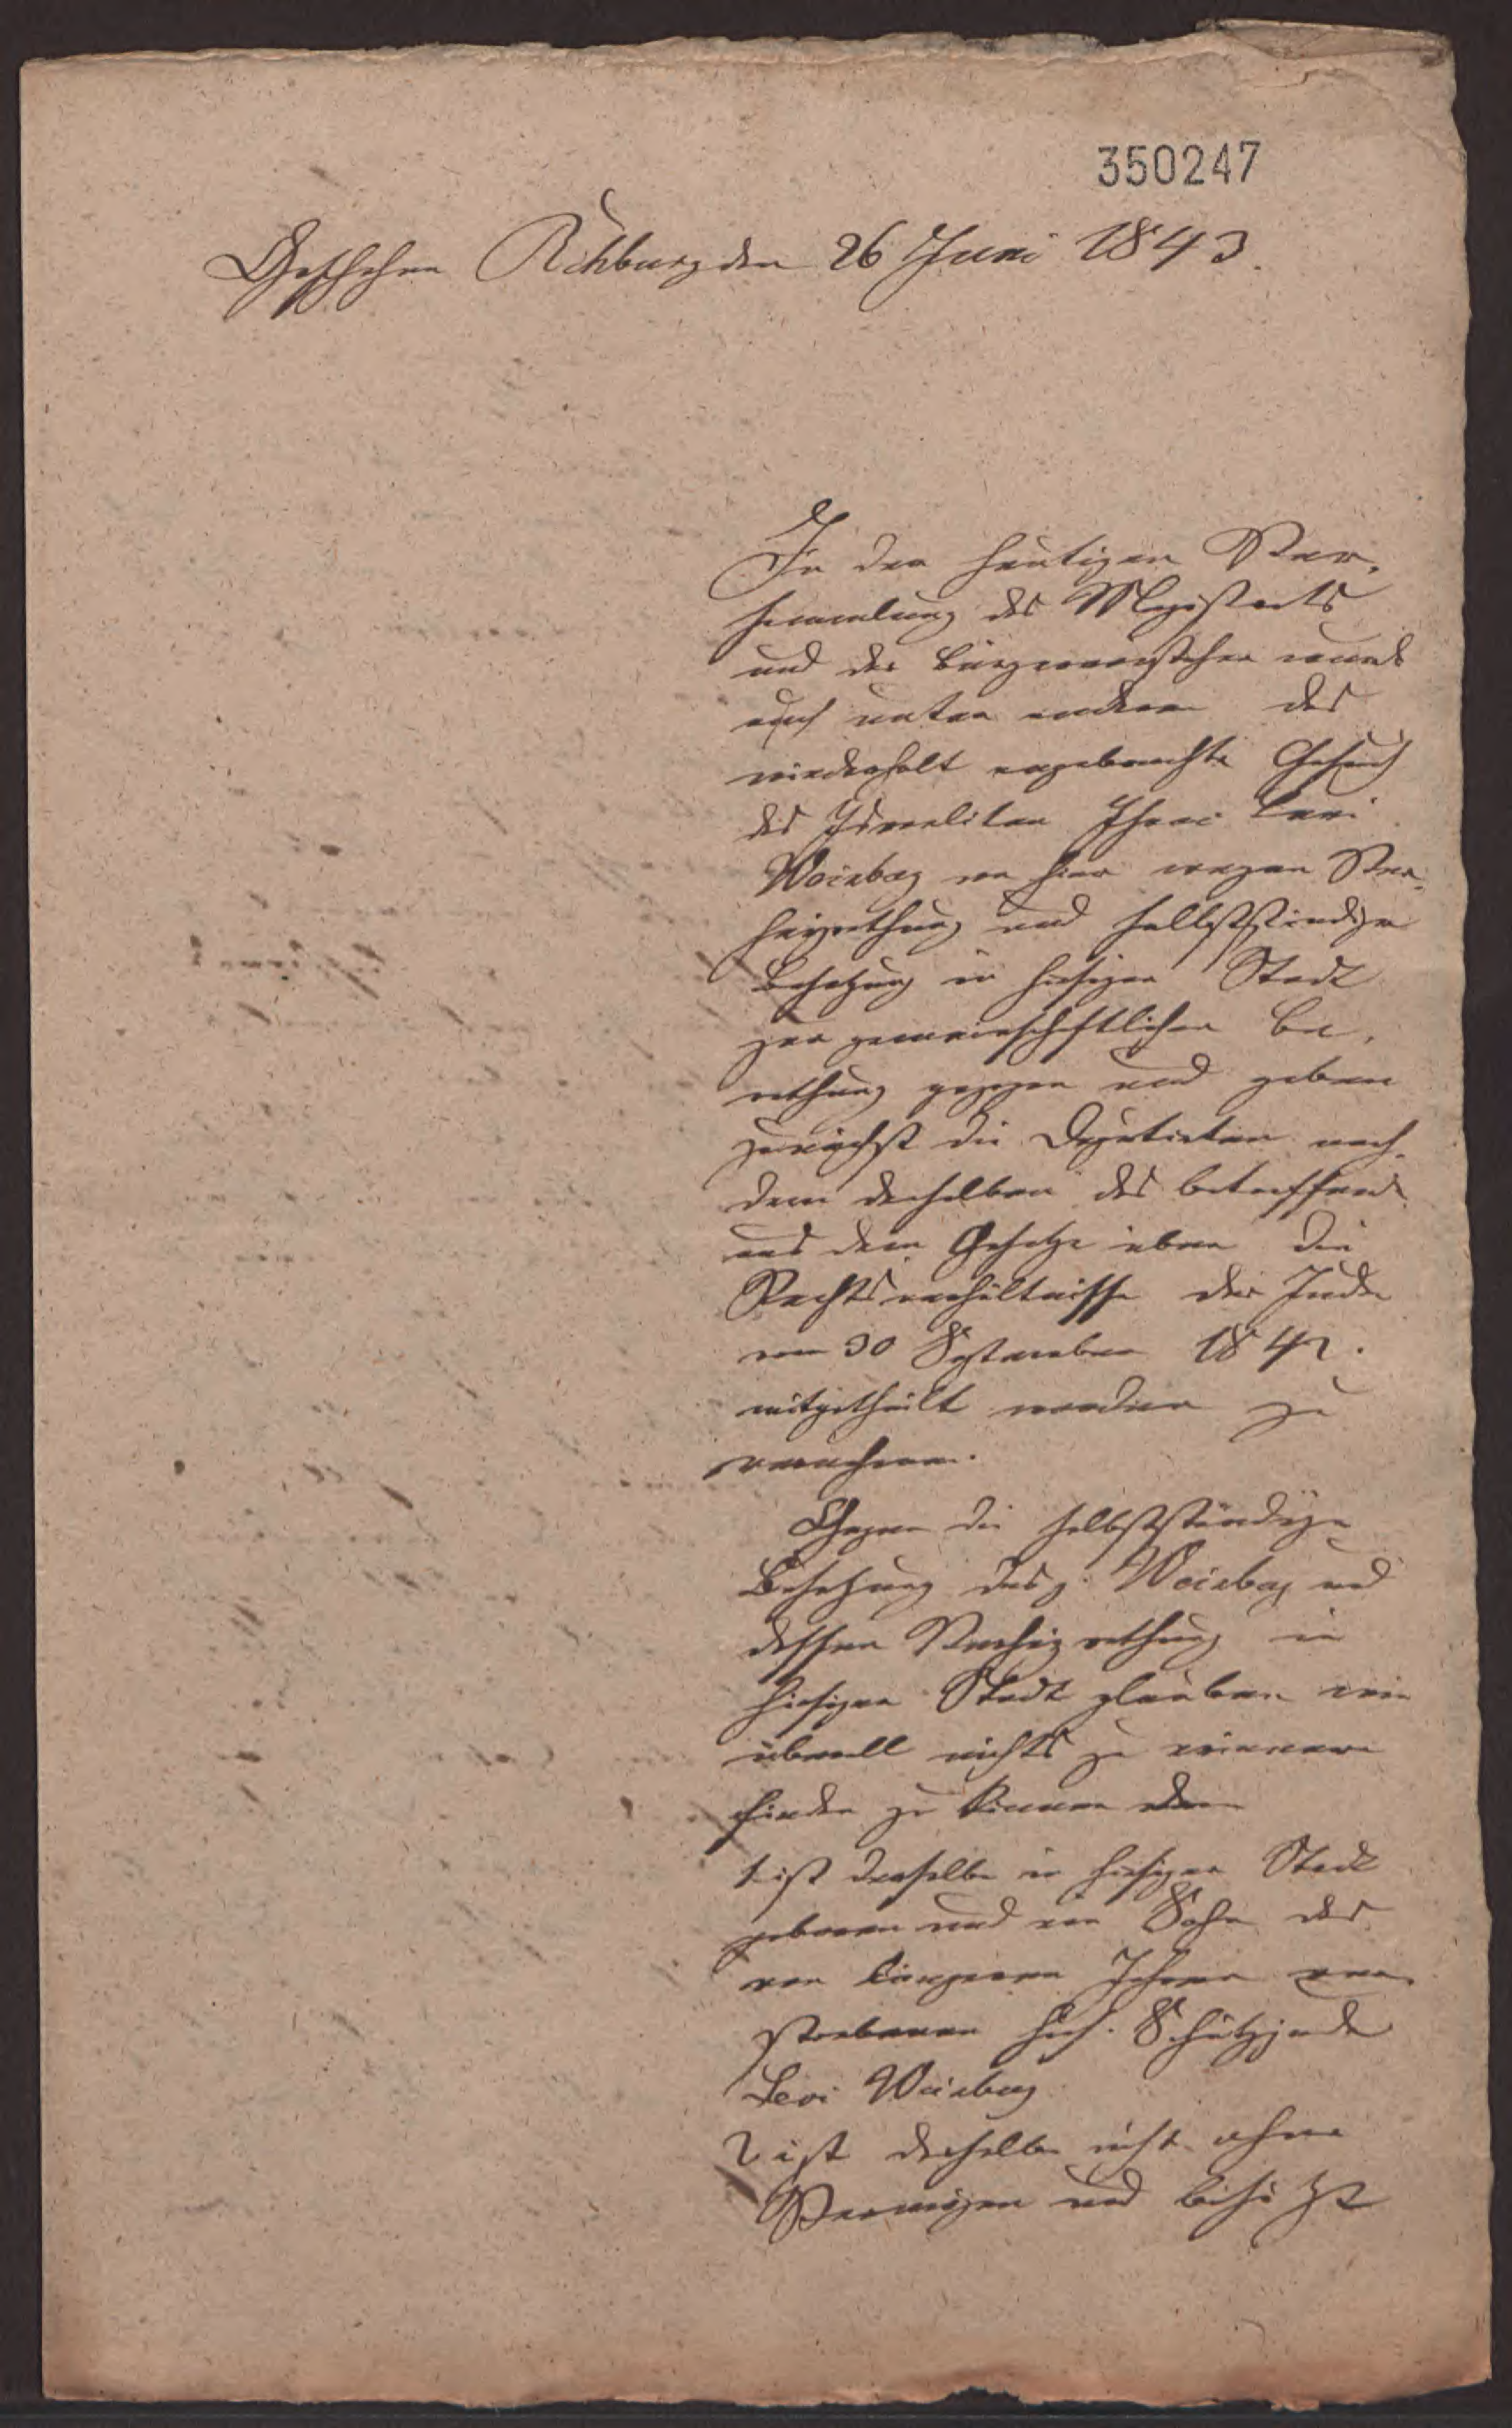 350247
Geschehen Rehburg den 26 Juni 1843.
In der heutigen Ver-
sammlung des Magistrats
und der Bürgervorsteher ward
auch unter andern das
wiederholt angebrachte Gesuch
des Israeliten Isaac Levi
Weinberg von hier wegen Ver-
heyrathung und selbstständiger
Besetzung in hiesiger Stadt
zur gemeinschaftlichen Be-
rathung gezogen und geben
zunächst die Deputirten nach-
dem denselben das betreffende
aus dem Gesetze über die
Rechtsverhältnisse der Juden
vom 30 September 1842.
mitgetheilt worden zu
vernehmen.
Gegen die selbstständige
Besetzung des p. Weinberg und
dessen Verheyrathung in
hiesiger Stadt glauben wir
überall nichts zu erinnern
finden zu können denn
1. ist derselbe in hiesiger Stadt
geboren und ein Sohn des
vor längeren Jahren ver-
storbenen hies. Schutzjuden
Levi Weinberg
2 ist derselbe nicht ohne
Vermögen und besitzt